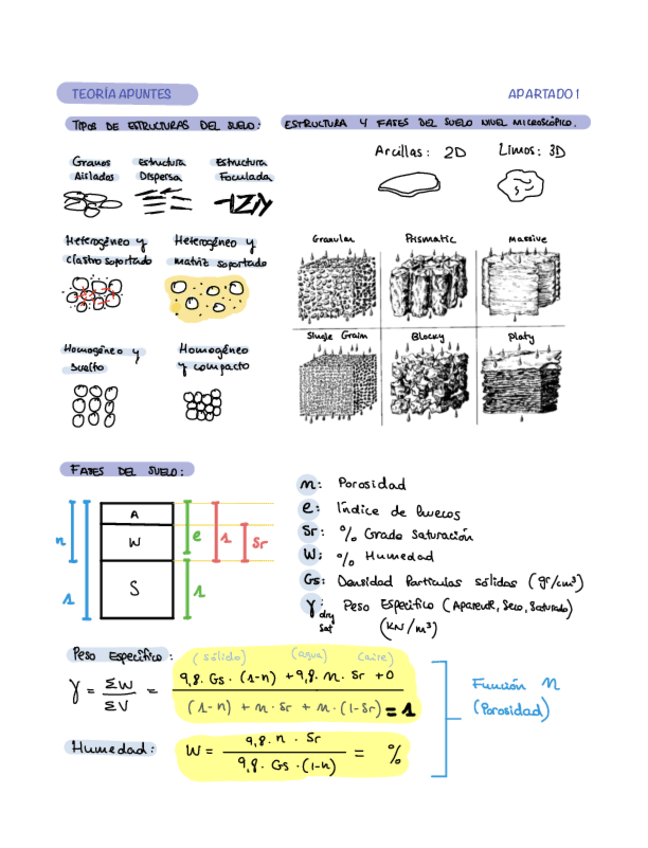 TEORÍA APUNTES
APARTADO 1
TIPOS DE ESTRUCTURAS DEL SUELO:
ESTRUCTURA Y FASES DEL SUELO NIVEL MICROSCÓPICO.
Arcillas: 2D
Limos: 3D
Granos Aislados
Estructura Dispersa
Estructura Foculada
Heterogéneo y clastro soportado
Heterogéneo y matriz soportado
Homogéneo y suelto
Homogéneo y compacto
Granular
Prismatic
Massive
Single Grain
Blocky
Platy
FASES DEL SUELO:
A
W
S
n
1
e
1
1
Sr
n: Porosidad
e: Índice de huecos
Sr: % Grado Saturación
W: % Humedad
Gs: Densidad Partículas sólidas (gr/cm³)
γ: Peso Específico (Aparente, Seco, Saturado)
dry
sat
(KN/m³)
Peso Específico:
(sólido) (agua) (aire)
γ = ΣW / ΣV = 9,8. Gs. (1-n) + 9,8. n. Sr + 0 / (1-n) + n. Sr + n. (1-Sr) = 1
Humedad: W = 9,8. n. Sr / 9,8. Gs. (1-n) = %
Función n
(Porosidad)